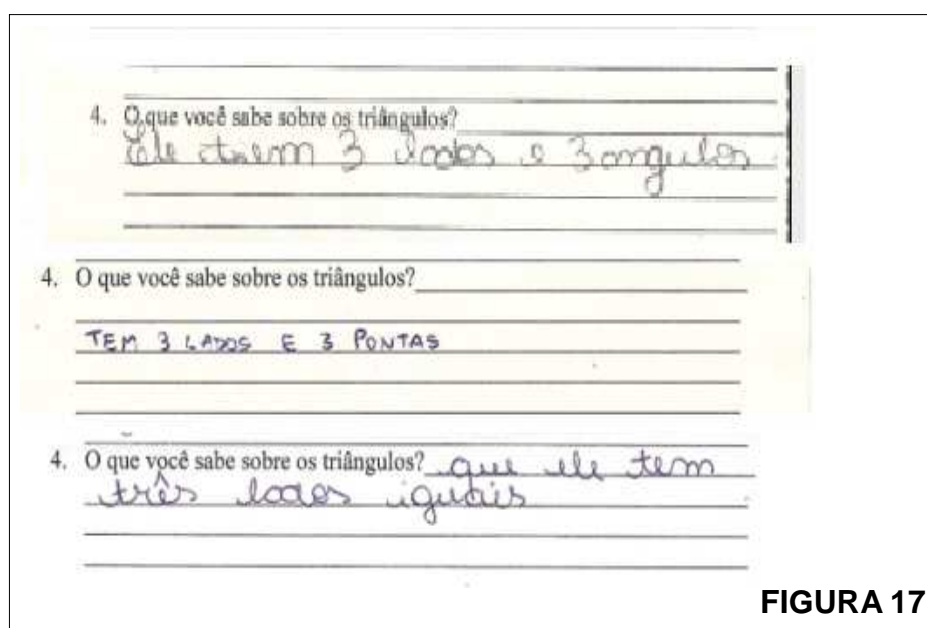 4. O que você sabe sobre os triângulos?
Ele tem 3 lados e 3 angulos
4. O que você sabe sobre os triângulos?
TEM 3 LADOS E 3 PONTAS
4. O que você sabe sobre os triângulos? que ele tem
três lados iguais
FIGURA 17